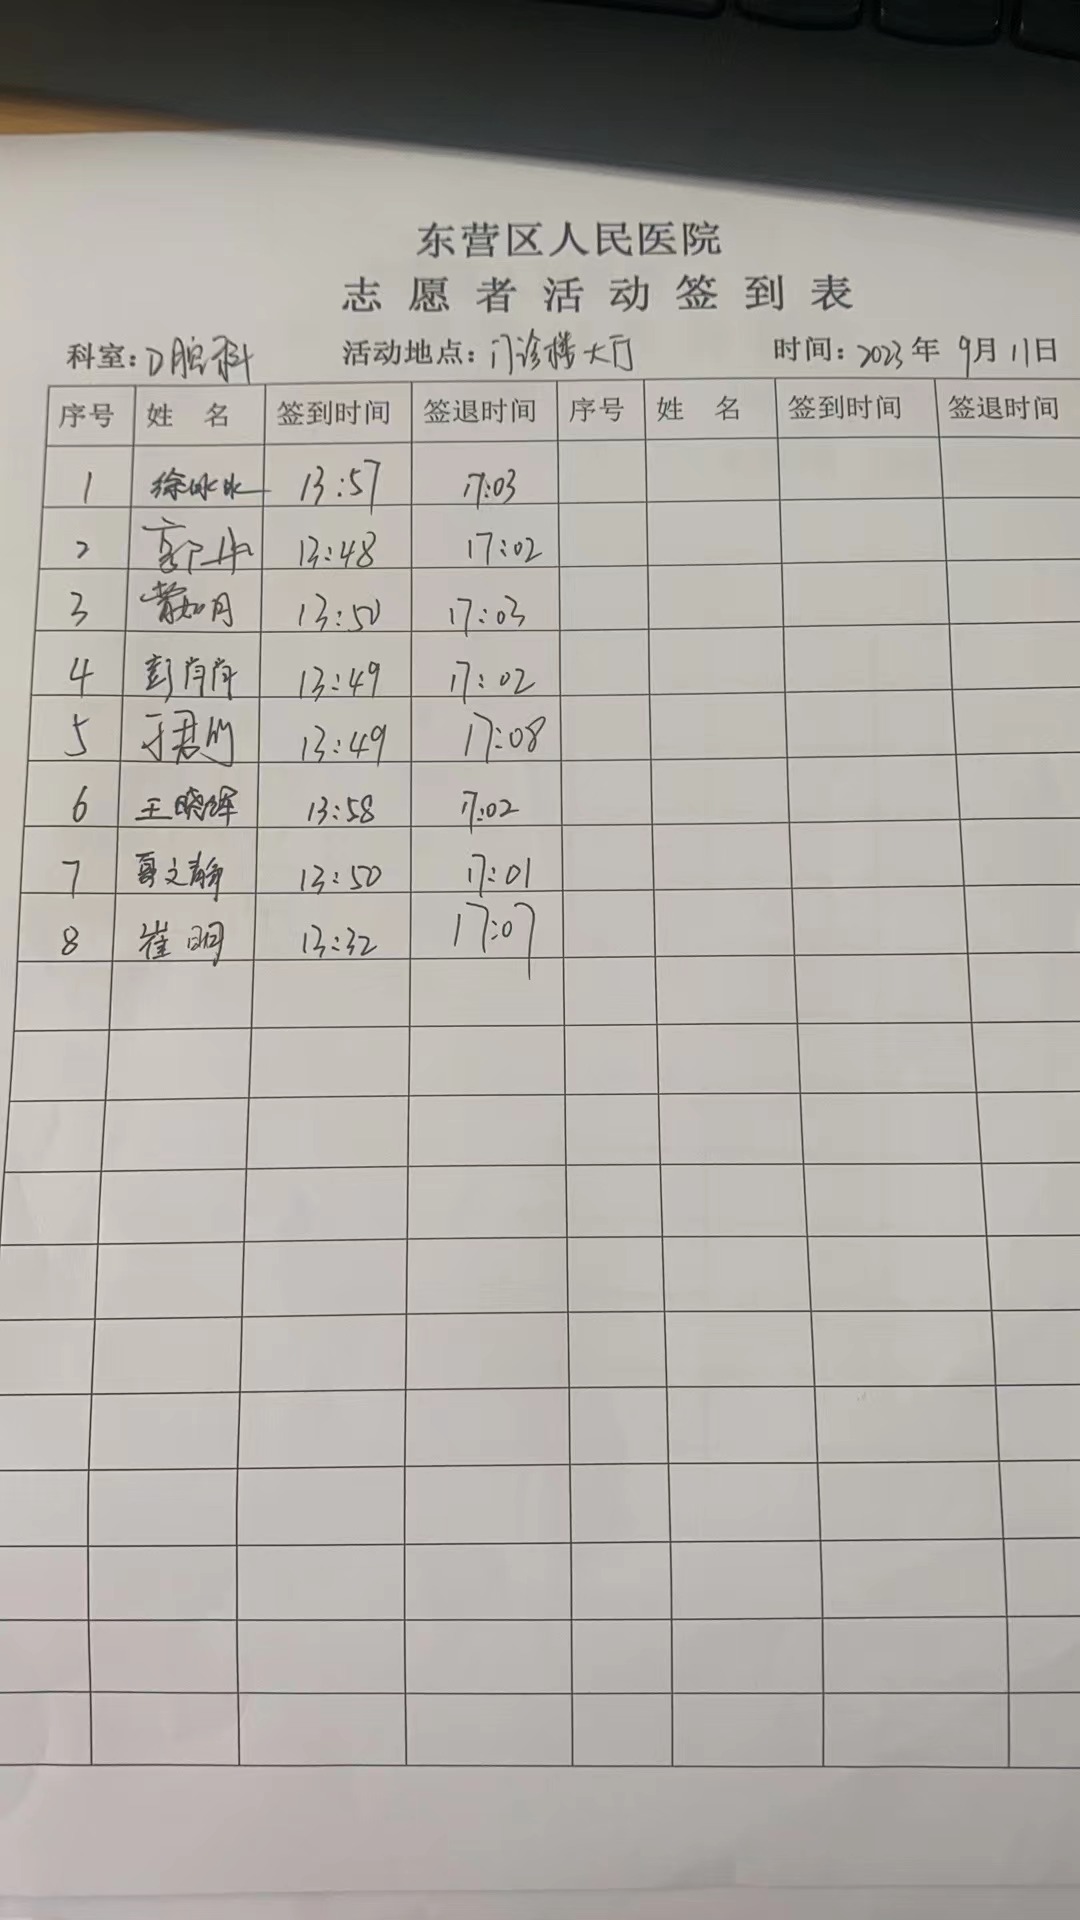 东营区人民医院
志愿者活动签到表
科室：口腔科 活动地点：门诊楼大厅 时间：2023年 9月11日
序号 姓 名 签到时间 签退时间 序号 姓 名 签到时间 签退时间
1 徐冰冰 13:57 17:03
2 13:48 17:02
3 如月 13:50 17:03
4 彭肖肖 13:49 17:02
5 于君 13:49 17:08
6 王晓辉 13:58 17:02
7 夏文静 13:50 17:01
8 崔明 13:32 17:07